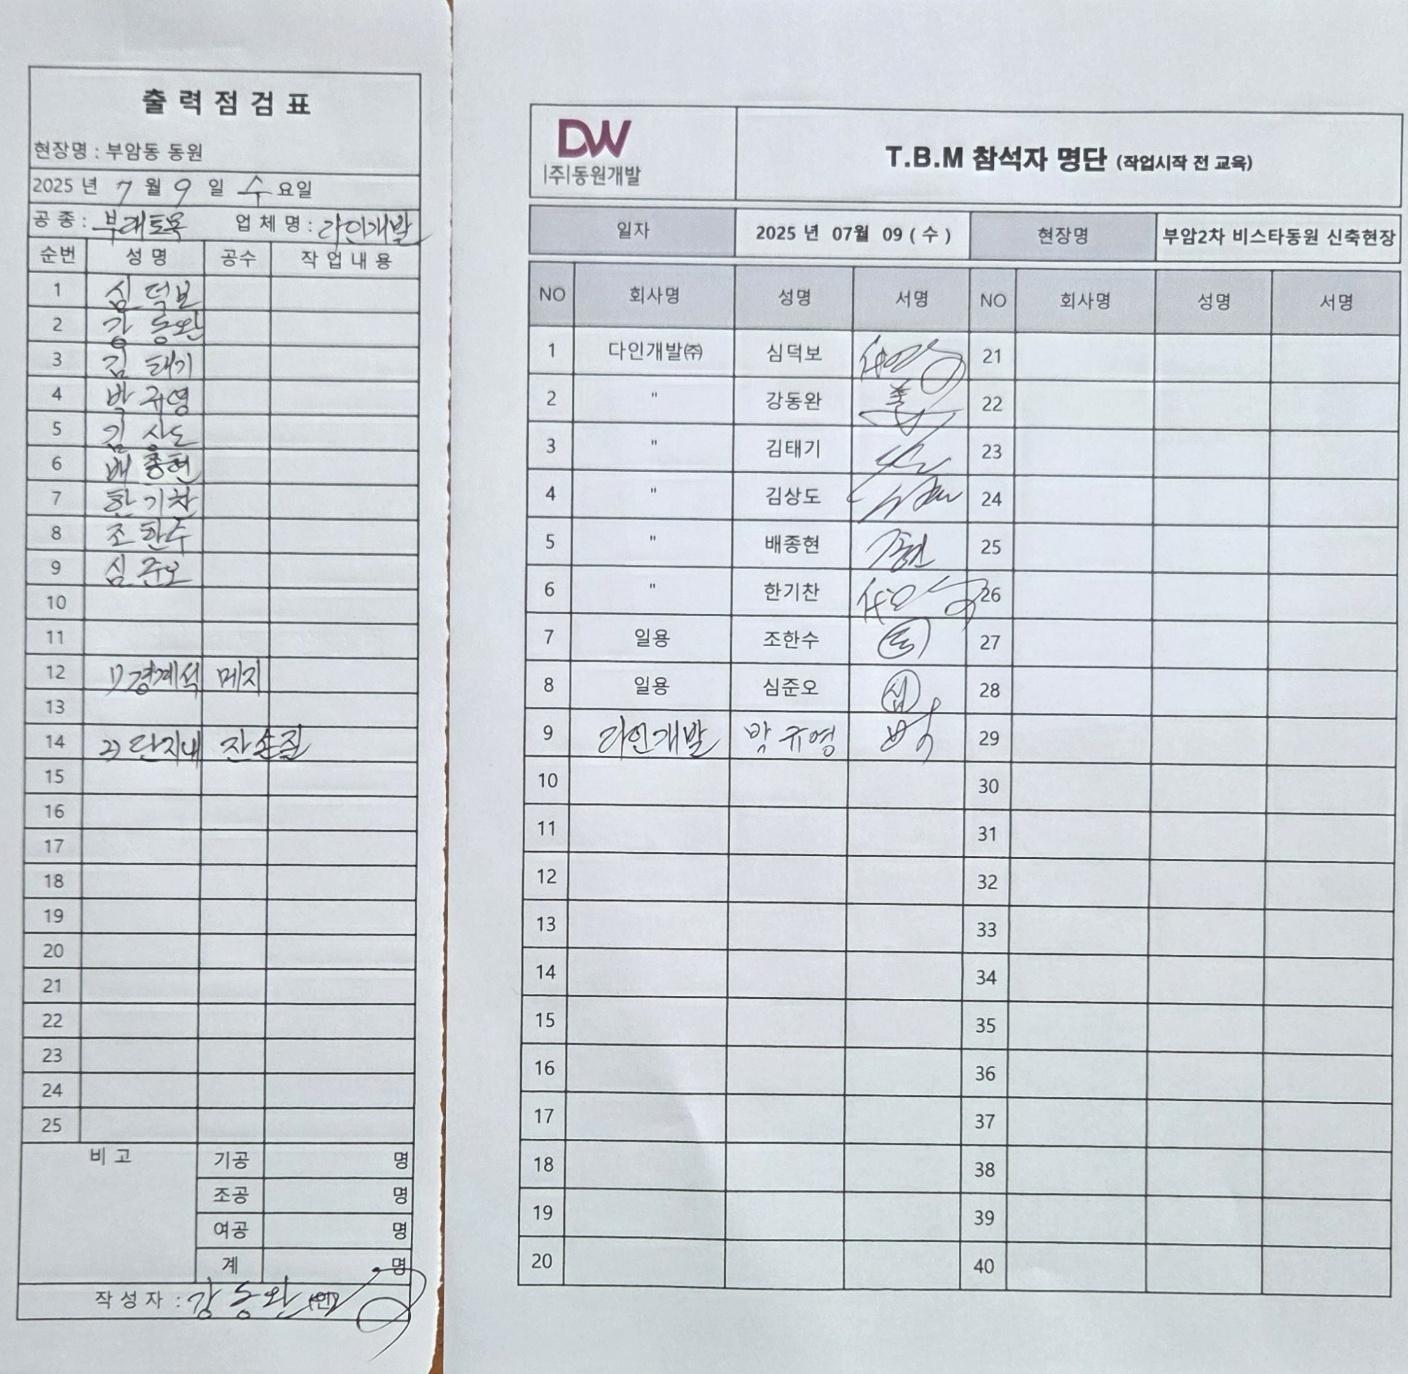 출력점검표
현장명 : 부암동 동원
2025 년 7 월 9 일 수 요일
공 종 : 부대토목 업 체 명 : 다인개발
순번 성 명 공수 작 업 내 용
1 심덕보
2 강동완
3 김태기
4 박규영
5 김상도
6 배종현
7 한기찬
8 조한수
9 심준오
10
11
12 1) 경계석 메지
13
14 2) 단지내 잔손질
15
16
17
18
19
20
21
22
23
24
25
비 고 기공 명
조공 명
여공 명
계 명
작 성 자 : 강동완 (인)
DW
(주)동원개발
T.B.M 참석자 명단 (작업시작 전 교육)
일자 2025 년 07월 09 ( 수 ) 현장명 부암2차 비스타동원 신축현장
NO 회사명 성명 서명 NO 회사명 성명 서명
1 다인개발㈜ 심덕보 21
2 " 강동완 22
3 " 김태기 23
4 " 김상도 24
5 " 배종현 25
6 " 한기찬 26
7 일용 조한수 27
8 일용 심준오 28
9 다인개발 박규영 29
10 30
11 31
12 32
13 33
14 34
15 35
16 36
17 37
18 38
19 39
20 40